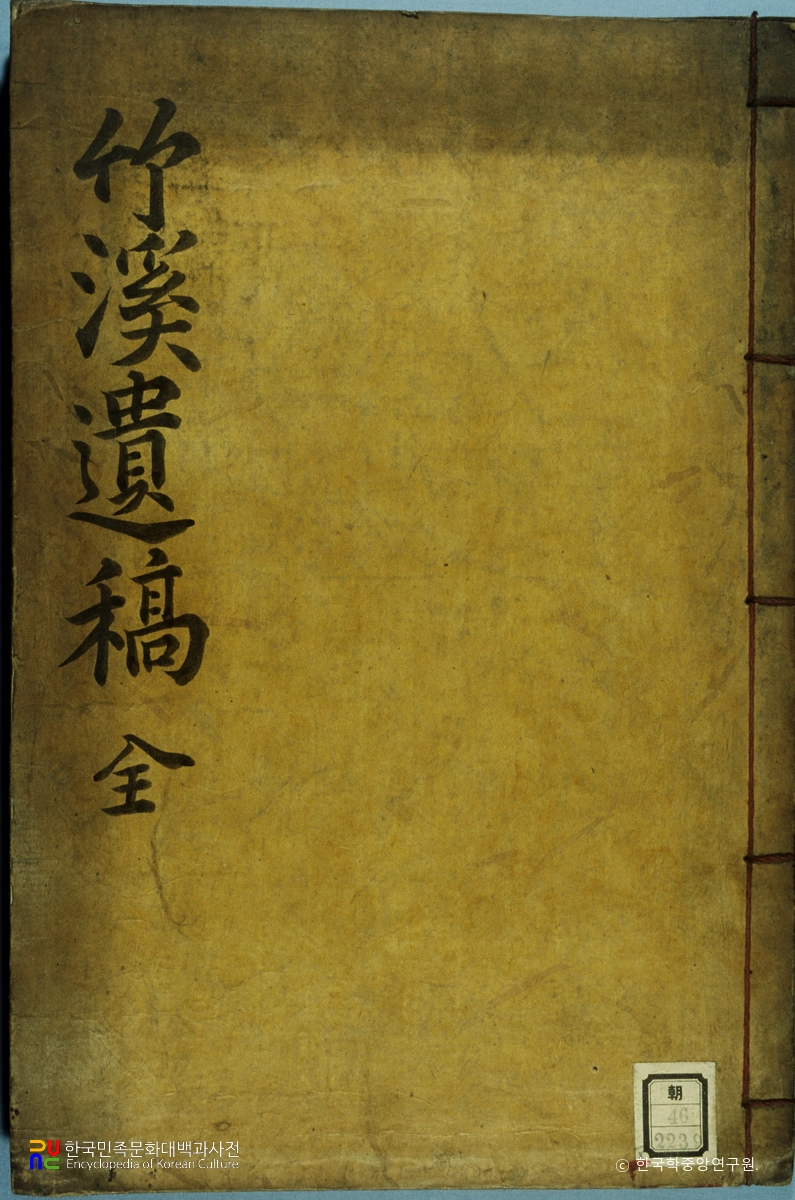 竹溪遺稿 全
朝
46
2239
한국민족문화대백과사전
Encyclopedia of Korean Culture
© 한국학중앙연구원